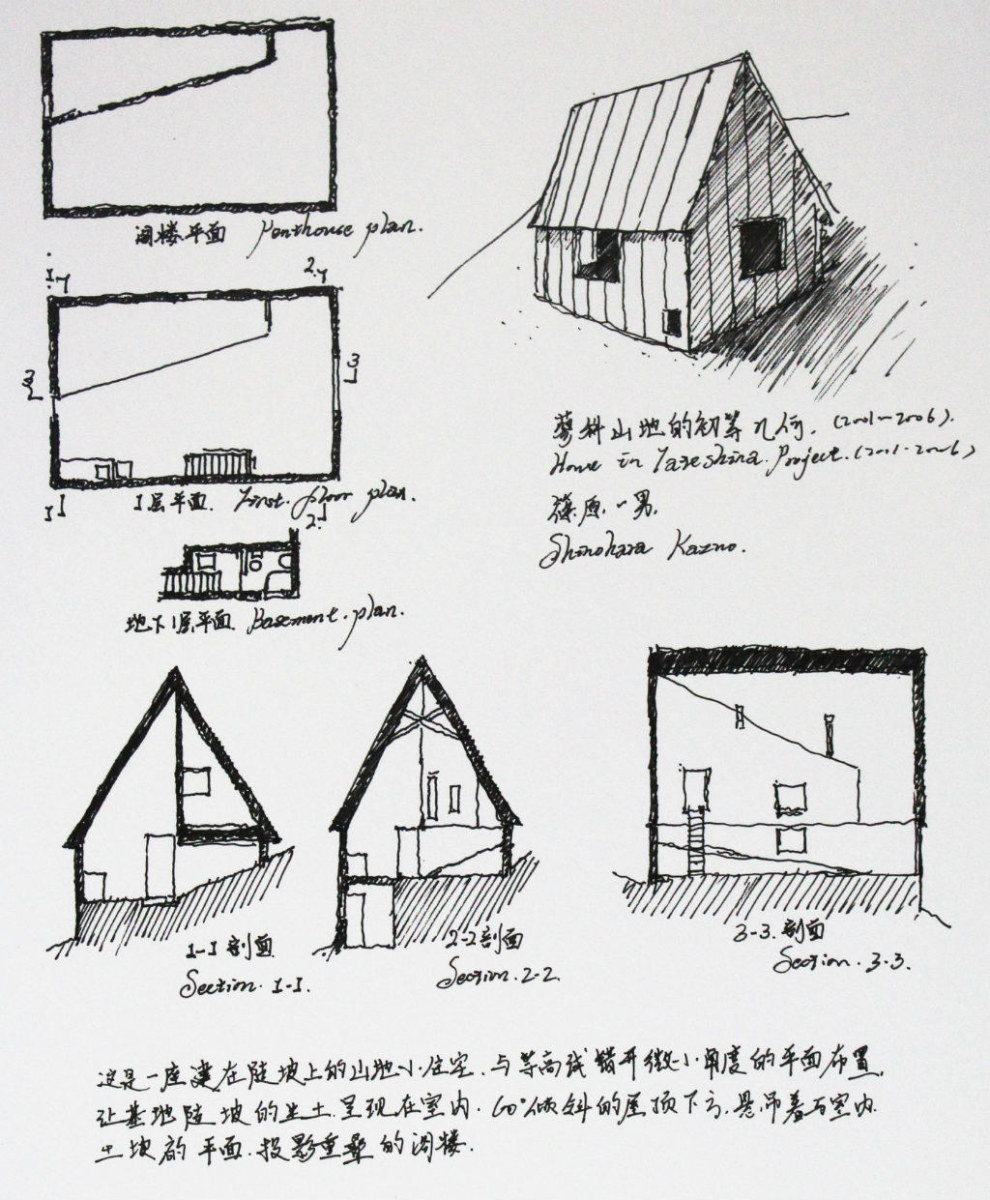 阁楼平面 Penthouse plan.
1 2
3 3
1 1层平面. First. floor plan.
2
地下1层平面. Basement. plan.
蓼科山地的初等几何. (2001—2006).
House in Tateshina. Project. (2001-2006)
篠原一男.
Shinohara Kazuo.
1-1剖面
Section. 1-1.
2-2剖面
Section. 2-2.
3-3.剖面
Section. 3-3.
这是一座建在陡坡上的山地小住宅. 与等高线错开微小角度的平面布置.
让基地陡坡的坐土. 呈现在室内. 60°倾斜的屋顶下方. 悬吊着与室内
土坡的平面. 投影重叠的阁楼.